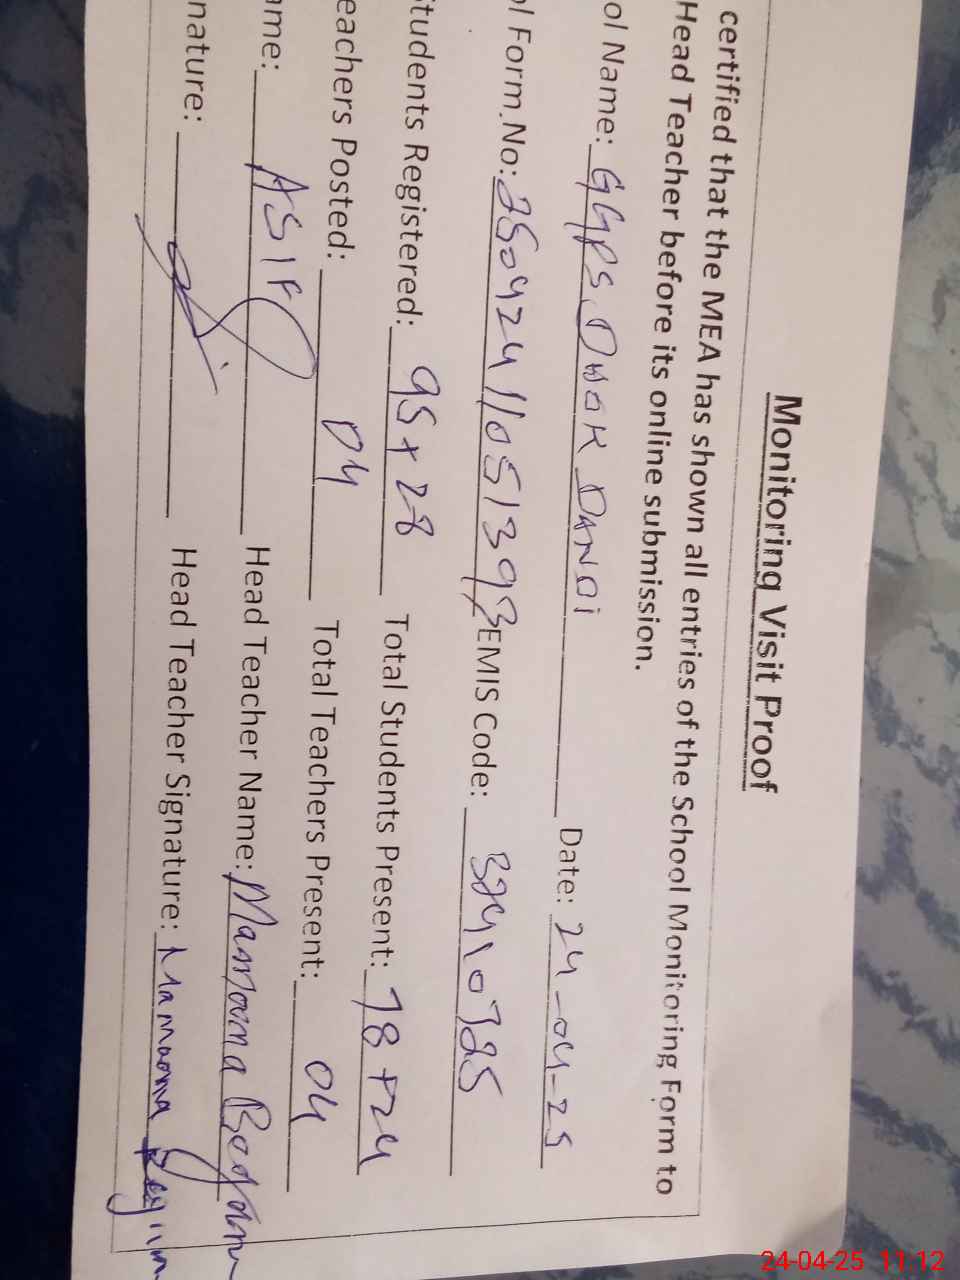 Monitoring Visit Proof
certified that the MEA has shown all entries of the School Monitoring Form to
Head Teacher before its online submission.
ol Name: GGPS DHOK DANDI Date: 24-04-25
ol Form.No: 35042411051393 EMIS Code: 37410725
Students Registered: 95+28 Total Students Present: 78+24
eachers Posted: 04 Total Teachers Present: 04
ame: ASIF Head Teacher Name: Mamoona Begum
nature: Head Teacher Signature: Mamoona Begum
24-04-25 11:12